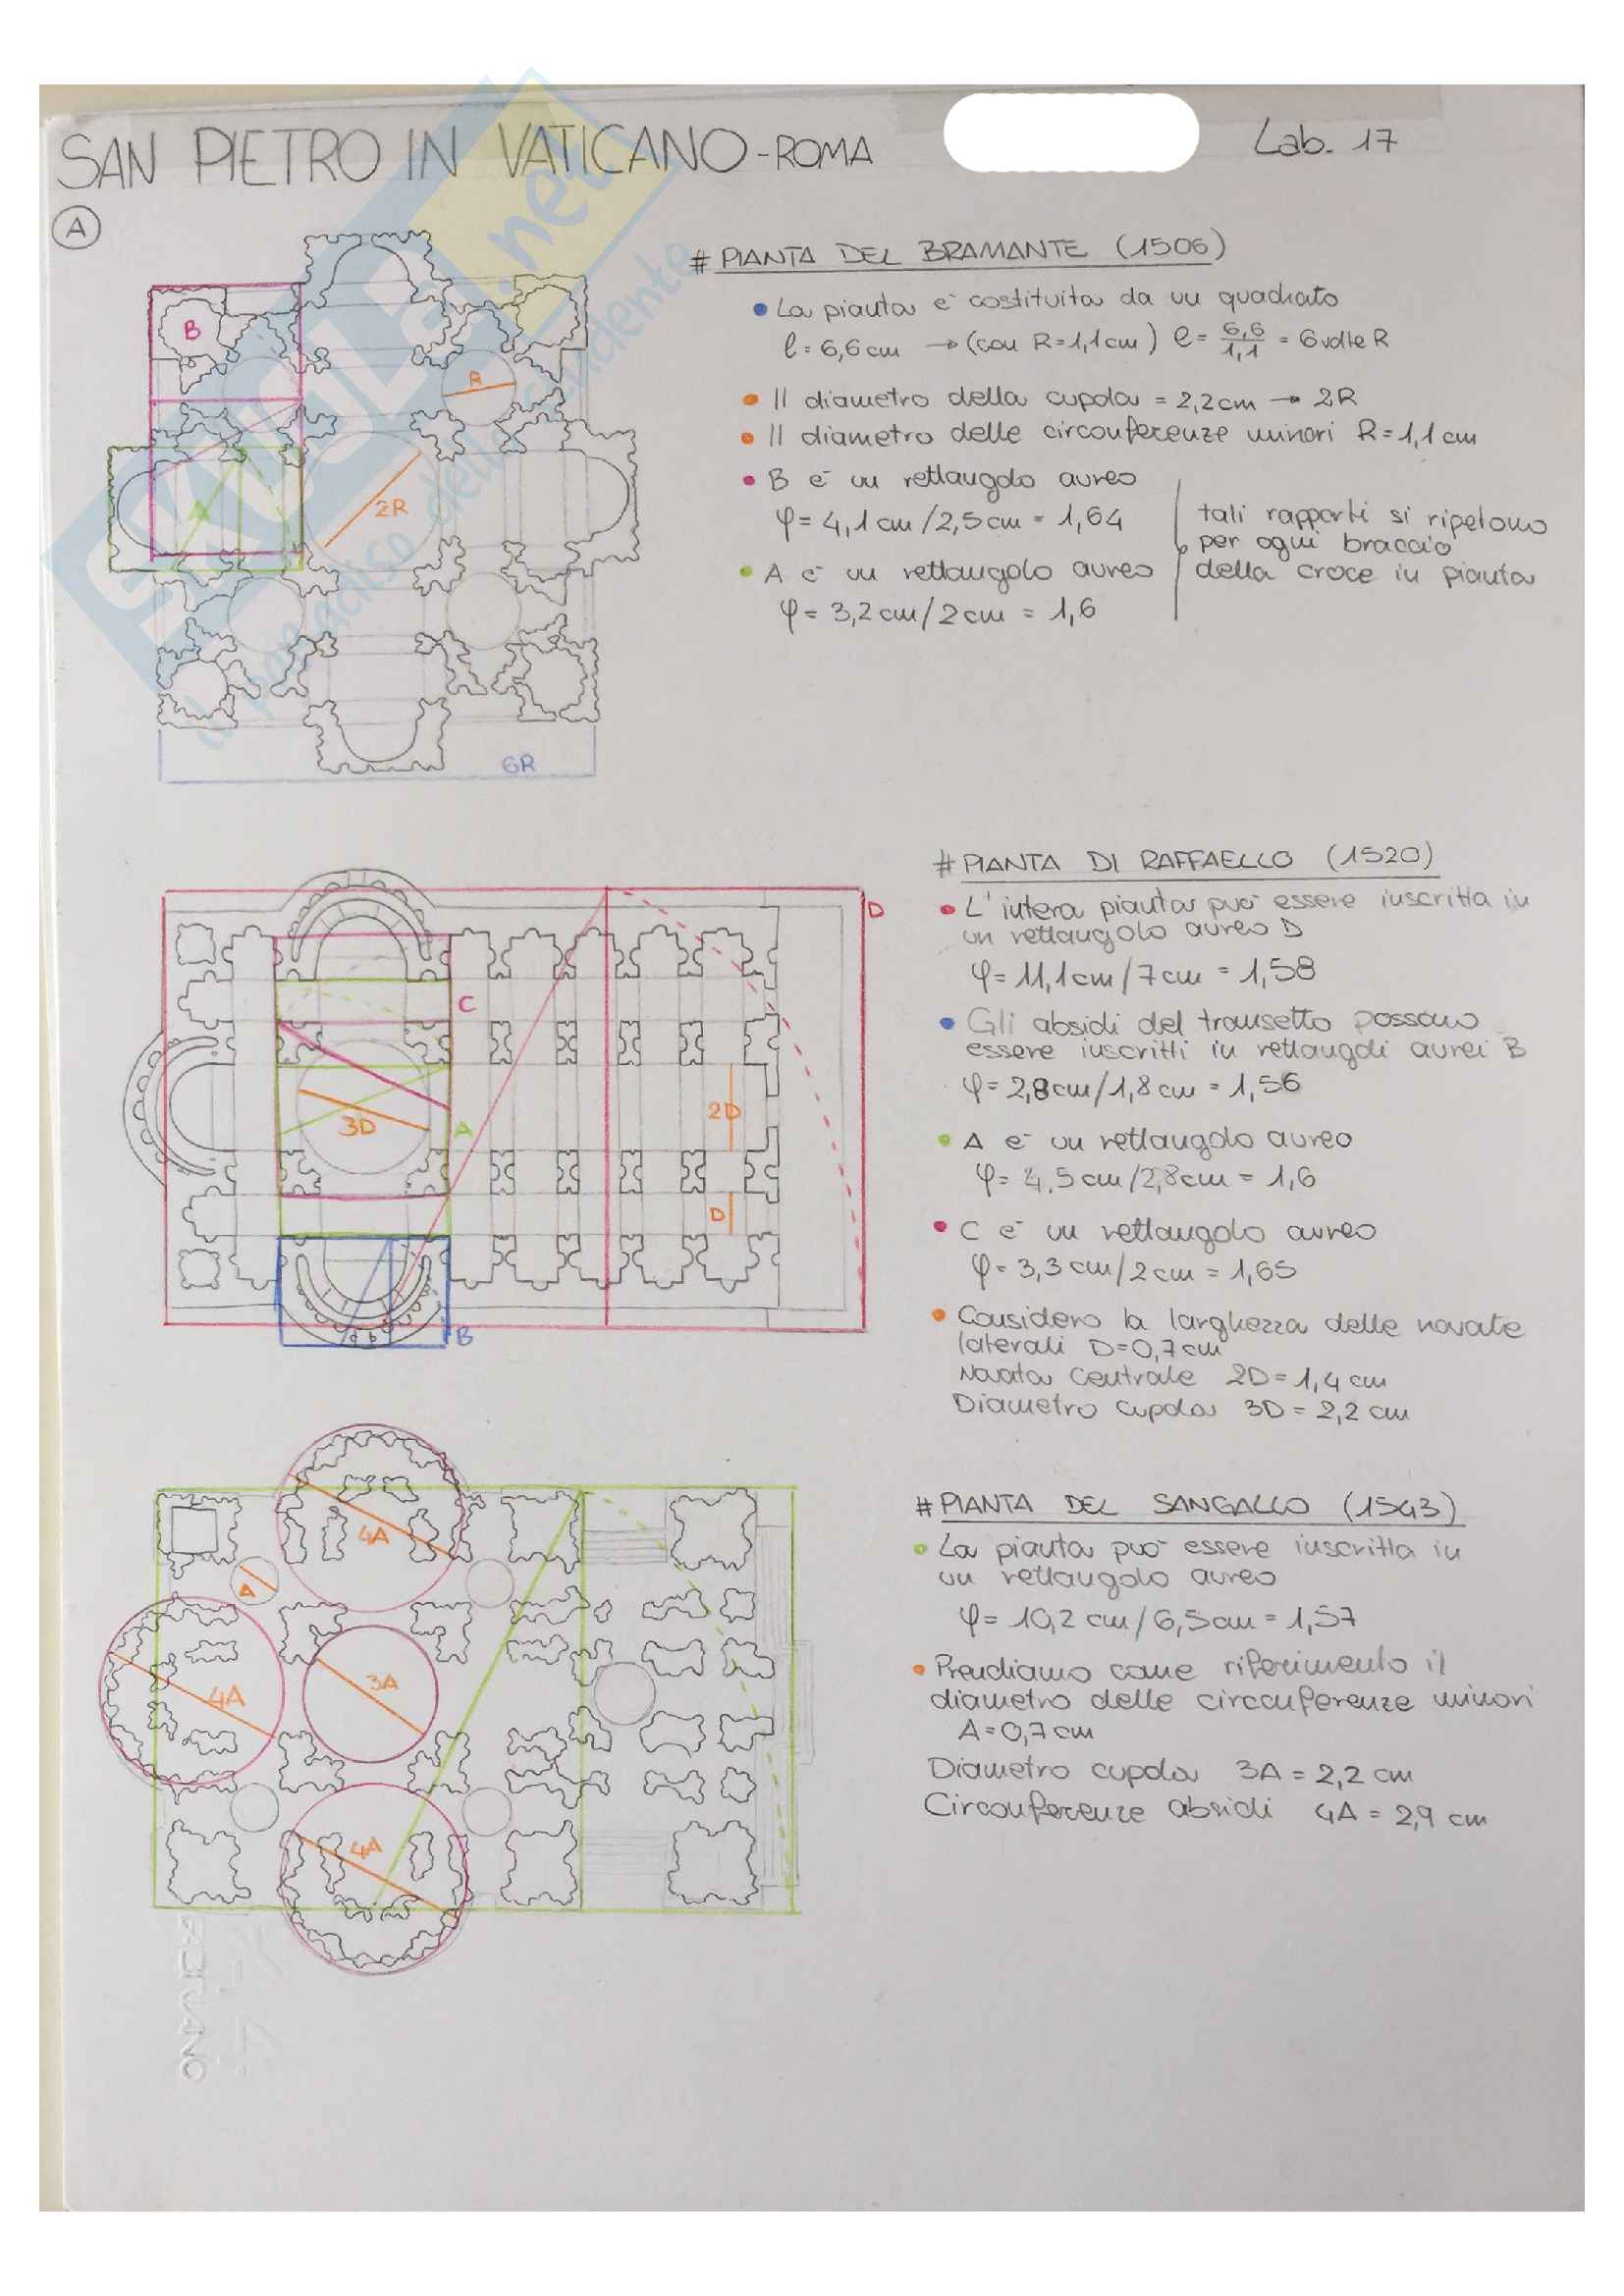 SAN PIETRO IN VATICANO - ROMA
Lab. 17
A
# PIANTA DEL BRAMANTE (1506)
• La pianta è costituita da un quadrato
l = 6,6 cm → (con R = 1,1 cm) l = 6,6/1,1 = 6 volte R
• Il diametro della cupola = 2,2 cm → 2R
• Il diametro delle circonferenze minori R = 1,1 cm
• B è un rettangolo aureo
φ = 4,1 cm / 2,5 cm = 1,64
• A è un rettangolo aureo
φ = 3,2 cm / 2 cm = 1,6
tali rapporti si ripetono
per ogni braccio
della croce in pianta
B
R
2R
A
6R
# PIANTA DI RAFFAELLO (1520)
• L'intera pianta può essere inscritta in
un rettangolo aureo D
φ = 11,1 cm / 7 cm = 1,58
• Gli absidi del transetto possono
essere inscritti in rettangoli aurei B
φ = 2,8 cm / 1,8 cm = 1,56
• A è un rettangolo aureo
φ = 4,5 cm / 2,8 cm = 1,6
• C è un rettangolo aureo
φ = 3,3 cm / 2 cm = 1,65
• Considero la larghezza delle navate
laterali D = 0,7 cm
Navata centrale 2D = 1,4 cm
Diametro cupola 3D = 2,2 cm
D
C
2D
3D
A
D
B
# PIANTA DEL SANGALLO (1543)
• La pianta può essere inscritta in
un rettangolo aureo
φ = 10,2 cm / 6,5 cm = 1,57
• Prendiamo come riferimento il
diametro delle circonferenze minori
A = 0,7 cm
Diametro cupola 3A = 2,2 cm
Circonferenze absidi 4A = 2,9 cm
4A
A
3A
4A
4A
SKUOLA.net
il paradiso dello studente